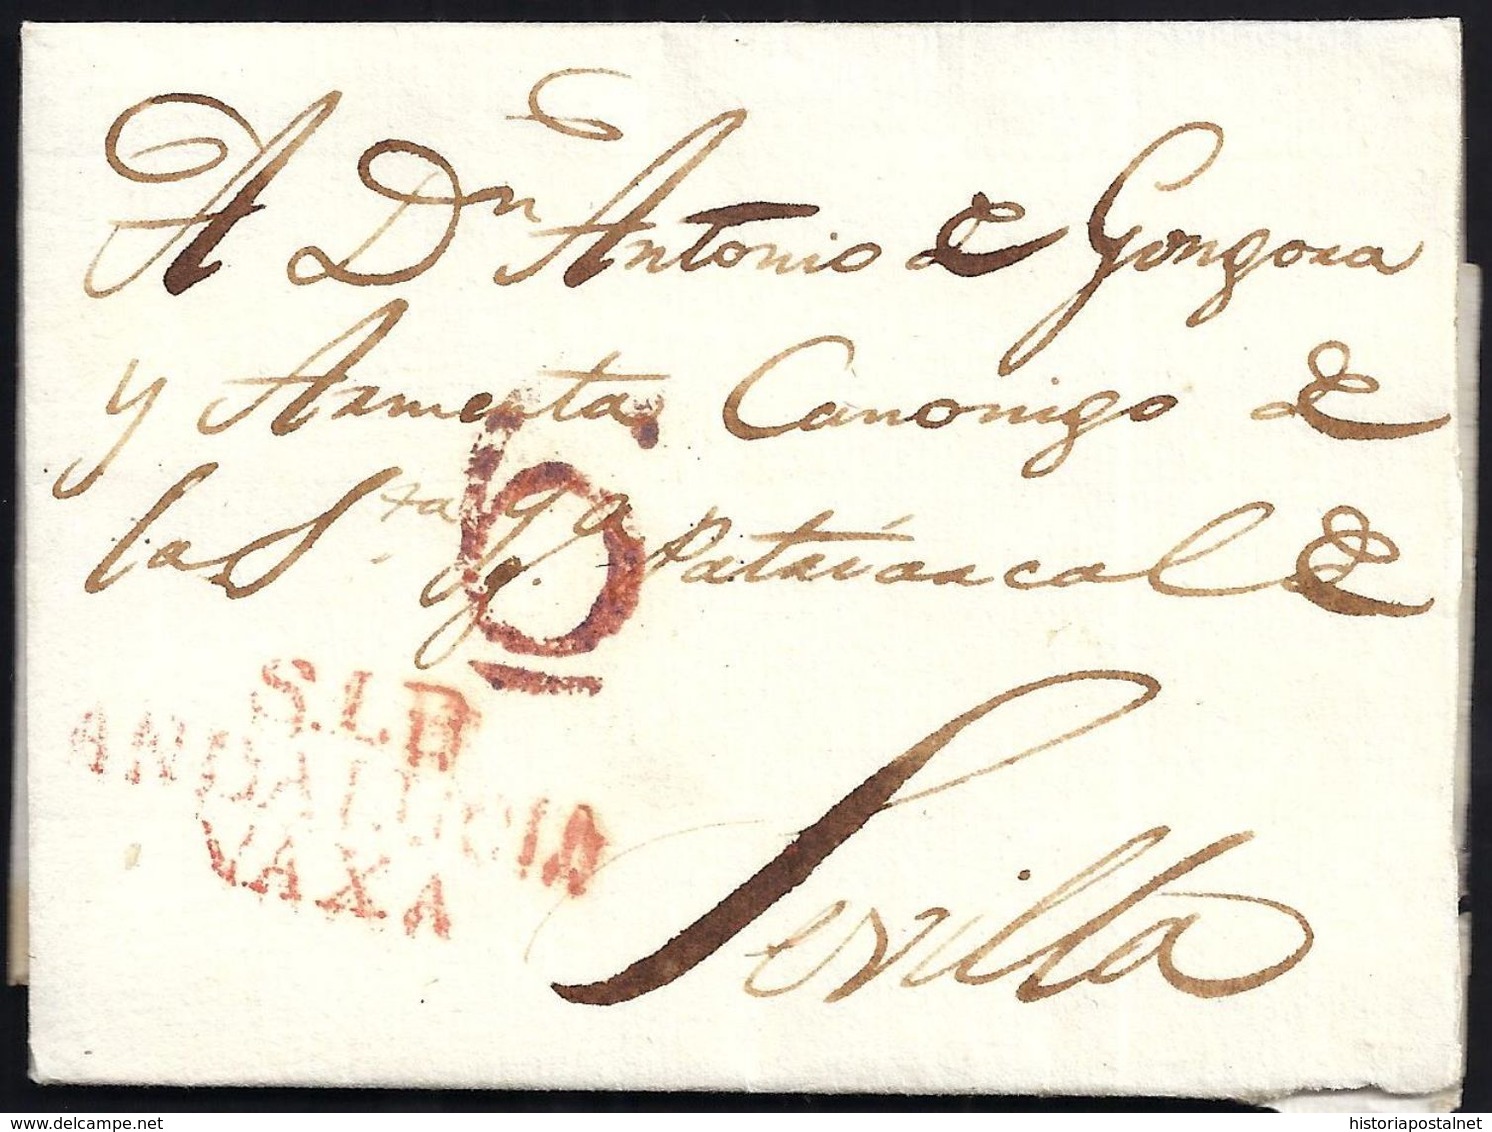 A Dn Antonio de Gongora
y Armenta Canonigo de
la Sta yga Patriarcal de
6
S.I.R
ANDALUCIA
VAXA
Sevilla
delcampe.net
historiapostalnet